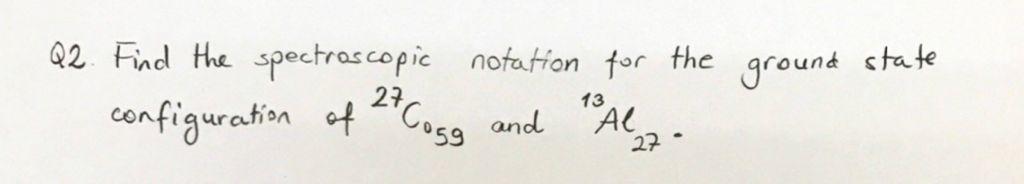 Q2. Find the spectroscopic notation for the ground state
configuration of ²⁷Co₅₉ and ¹³Al₂₇.